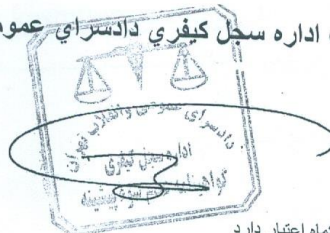 اداره سجل كيفري دادسراي عمو
دادسرای عمومی و انقلاب تهران
اداره سجل کیفری
گواهینامه سوء پیشینه
ماه اعتبار دارد